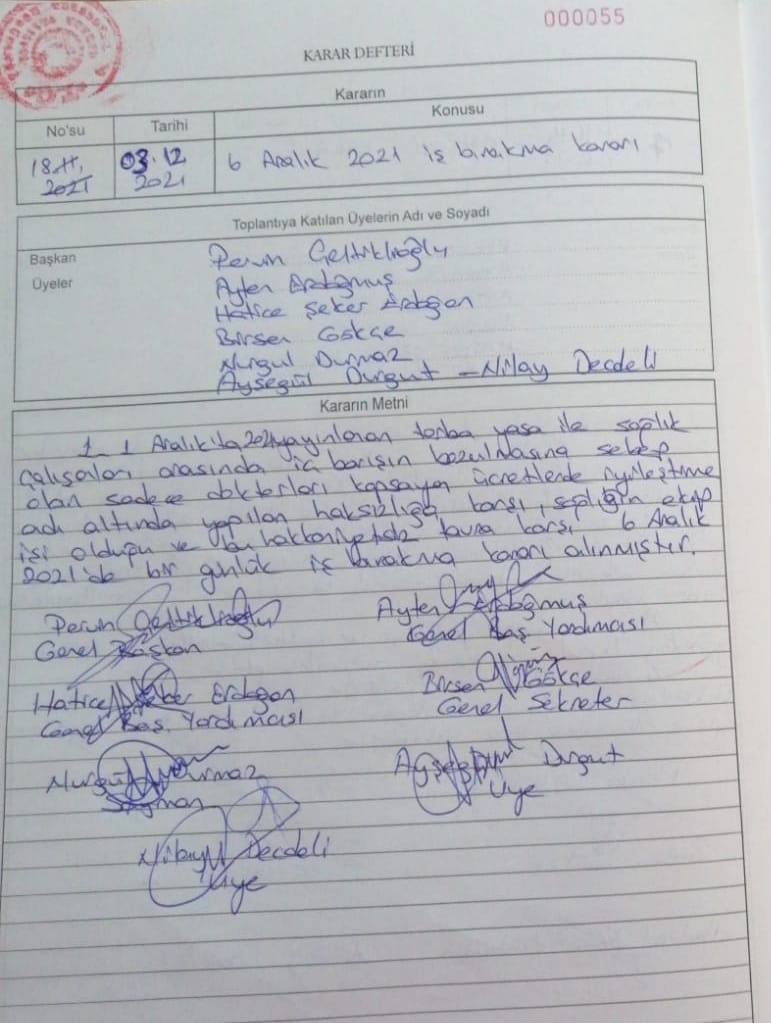 000055
KARAR DEFTERİ
Kararın
No'su Tarihi Konusu
18.11.2021 03.12 2021 6 Aralık 2021 iş bırakma kararı
Toplantıya Katılan Üyelerin Adı ve Soyadı
Başkan Perun Geltiklioğlu
Üyeler Ayten Erdoğmuş
Hatice Şeker Erdoğan
Birsen Gökçe
Nurgul Durmaz
Ayşegül Durgut - Nilay Decdeli
Kararın Metni
1- 1 Aralık'ta 2021 yayınlanan torba yasa ile sağlık
çalışanları arasında iç barışın bozulmasına sebep
olan sadece doktorları kapsayan ücretlerde iyileştirme
adı altında yapılan haksızlığa karşı, sağlığın ekip
işi olduğu ve bu hakkaniyetsiz tavra karşı 6 Aralık
2021'de bir günlük iş bırakma kararı alınmıştır.
Perun Geltiklioğlu Ayten Erdoğmuş
Genel Başkan Genel Baş Yardımcısı
Hatice Şeker Erdoğan Birsen Gökçe
Genel Baş. Yardımcısı Genel Sekreter
Nurgül Durmaz Ayşegül Durgut
Sayman Üye
Nilay Decdeli
Üye